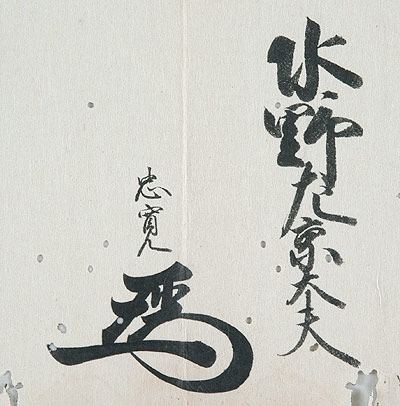 水野左京大夫
忠寛